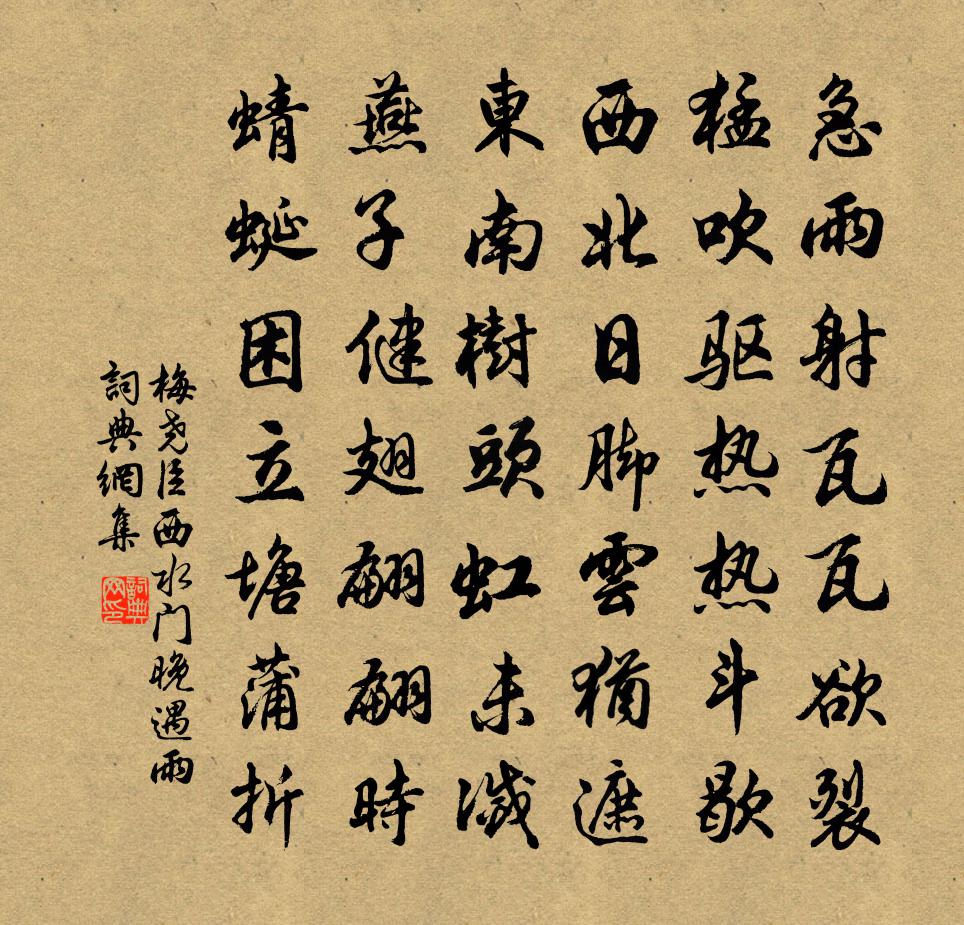 急雨射瓦瓦欲裂
猛吹驱热热斗歇
西北日脚雲猶遮
東南樹頭虹未滅
燕子健翅翩翩時
蜻蜓困立塘蒲折
梅尧臣西水门晚遇雨
詞典網集
詞典网印